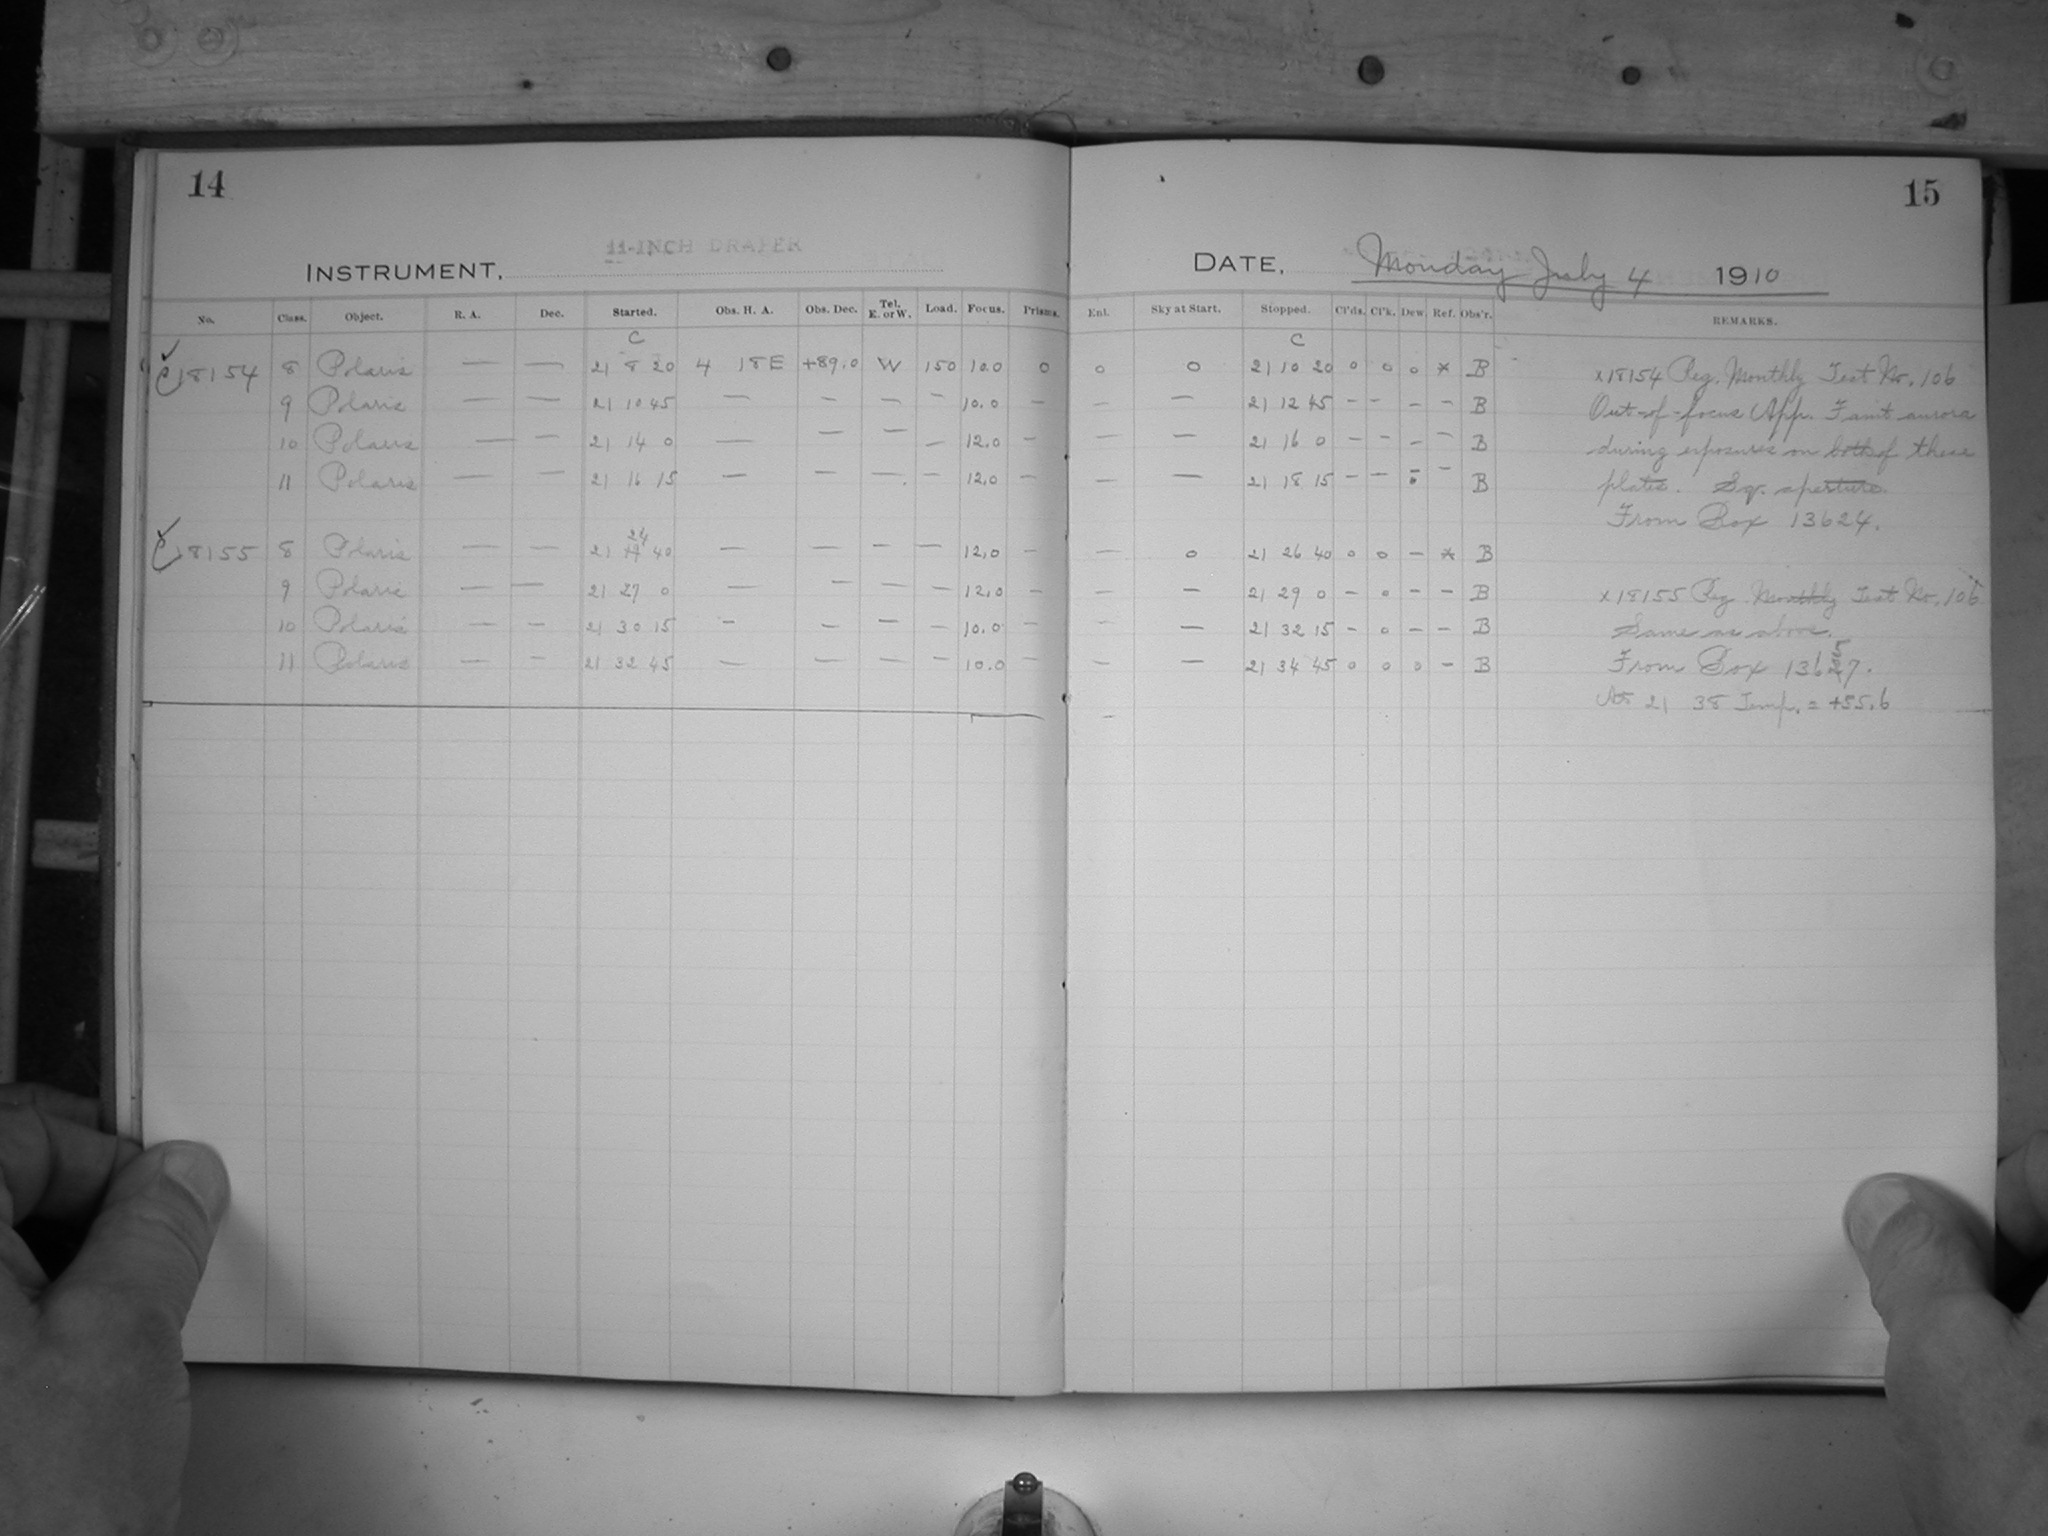 14
15
11-INCH DRAPER
INSTRUMENT,
DATE, Monday July 4 1910
No. Class. Object. R. A. Dec. Started. Obs. H. A. Obs. Dec. Tel. E. or W. Load. Focus. Prisms. Enl. Sky at Start. Stopped. Cl'ds. Cl'k. Dew Ref. Obs'r. REMARKS.
C C
C 18154 8 Polaris — — 21 8 20 4 18 E +89.0 W 150 10.0 0 0 0 21 10 20 0 0 0 * B x18154 Reg. Monthly Test No. 106
9 Polaris — — 21 10 45 — — — — 10.0 — — — 21 12 45 — — — — B Out-of-focus App. Faint aurora
10 Polaris — — 21 14 0 — — — — 12.0 — — — 21 16 0 — — — — B during exposures on both of these
11 Polaris — — 21 16 15 — — — — 12.0 — — — 21 18 15 — — — — B plates. Sq. aperture.
From Box 13624.
24
C 18155 8 Polaris — — 21 40 — — — — 12.0 — — 0 21 26 40 0 0 — * B
9 Polaris — — 21 27 0 — — — — 12.0 — — — 21 29 0 — 0 — — B x18155 Reg. Monthly Test No. 106
10 Polaris — — 21 30 15 — — — — 10.0 — — — 21 32 15 — 0 — — B Same as above.
11 Polaris — — 21 32 45 — — — — 10.0 — — — 21 34 45 0 0 0 — B From Box
At 21 38 Temp. = +55.6